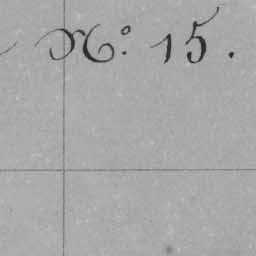 N.º 15.